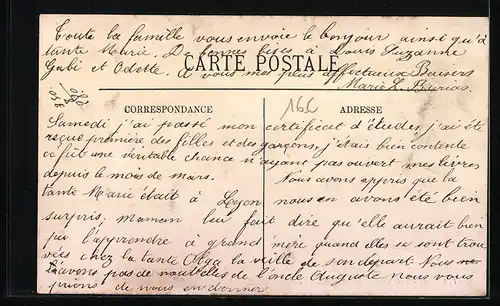 Toute la famille vous envoie le bonjour ainsi qu'à
tante Marie. De bonnes bises à Louis Suzanne
Gabi et Odette. A vous mes plus affectueux Baisers
Marie L.
CARTE POSTALE
CORRESPONDANCE
16C
ADRESSE
Samedi j'ai passé mon certificat d'études, j'ai été
reçue première des filles et des garçons, j'étais bien contente
ce fut une veritable chance n'ayant pas ouvert mes livres
depuis le mois de mars. Nous avons appris que la
tante Marie était à Lyon nous en avons été bien
surpris; maman leur fait dire qu'elle aurait bien
pu l'apprendre à grand'mère quand elles se sont trou
vées chez la tante Olga la veille de son départ. Nous
n'avons pas de nouvelles de l'oncle Auguste nous vous
prions de nous en donner